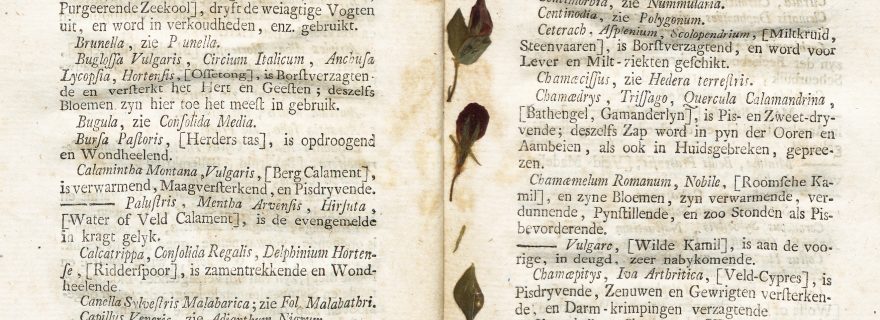 Purgeerende Zeekool], dryft de weiagtige Vogten
uit, en word in verkoudheden, enz. gebruikt.
Brunella, zie Prunella.
Bugloſſa Vulgaris, Circium Italicum, Anchuſa
Lycopſia, Hortenſis, [Oſſetong], is Borſtverzagten-
de en verſterkt het Hert en Geeſten; deszelfs
Bloemen zyn hier toe het meeſt in gebruik.
Bugula, zie Conſolida Media.
Burſa Paſtoris, [Herders tas], is opdroogend
en Wondheelend.
Calamintha Montana, Vulgaris, [Berg Calament],
is verwarmend, Maagverſterkend, en Pisdryvende.
—— Paluſtris, Mentha Arvenſis, Hirſuta,
[Water of Veld Calament], is de evengemelde
in kragt gelyk.
Calcatrippa, Conſolida Regalis, Delphinium Horten-
ſe, [Ridderſpoor], is zamentrekkende en Wond-
heelende.
Canella Sylveſtris Malabarica; zie Fol. Malabathri.
Capillus Veneris, zie Adianthum Nigrum.
Centimorbia, zie Nummularia.
Centinodia, zie Polygonum.
Ceterach, Aſplenium, Scolopendrium, [Miltkruid,
Steenvaaren], is Borſtverzagtend, en word voor
Lever en Milt-ziekten geſchikt.
Chamæciſſus, zie Hedera terreſtris.
Chamædrys, Triſſago, Quercula Calamandrina,
[Bathengel, Gamanderlyn], is Pis- en Zweet-dry-
vende; deszelfs Zap word in pyn der Ooren en
Aambeien, als ook in Huidsgebreken, gepree-
zen.
Chamæmelum Romanum, Nobile, [Roomſche Ka-
mil], en zyne Bloemen, zyn verwarmende, ver-
dunnende, Pynſtillende, en zoo Stonden als Pis-
bevorderende.
—— Vulgare, [Wilde Kamil], is aan de voo-
rige, in deugd, zeer nabykomende.
Chamæpitys, Iva Arthritica, [Veld-Cypres], is
Pisdryvende, Zenuwen en Gewrigten verſterken-
de, en Darm-krimpingen verzagtende.